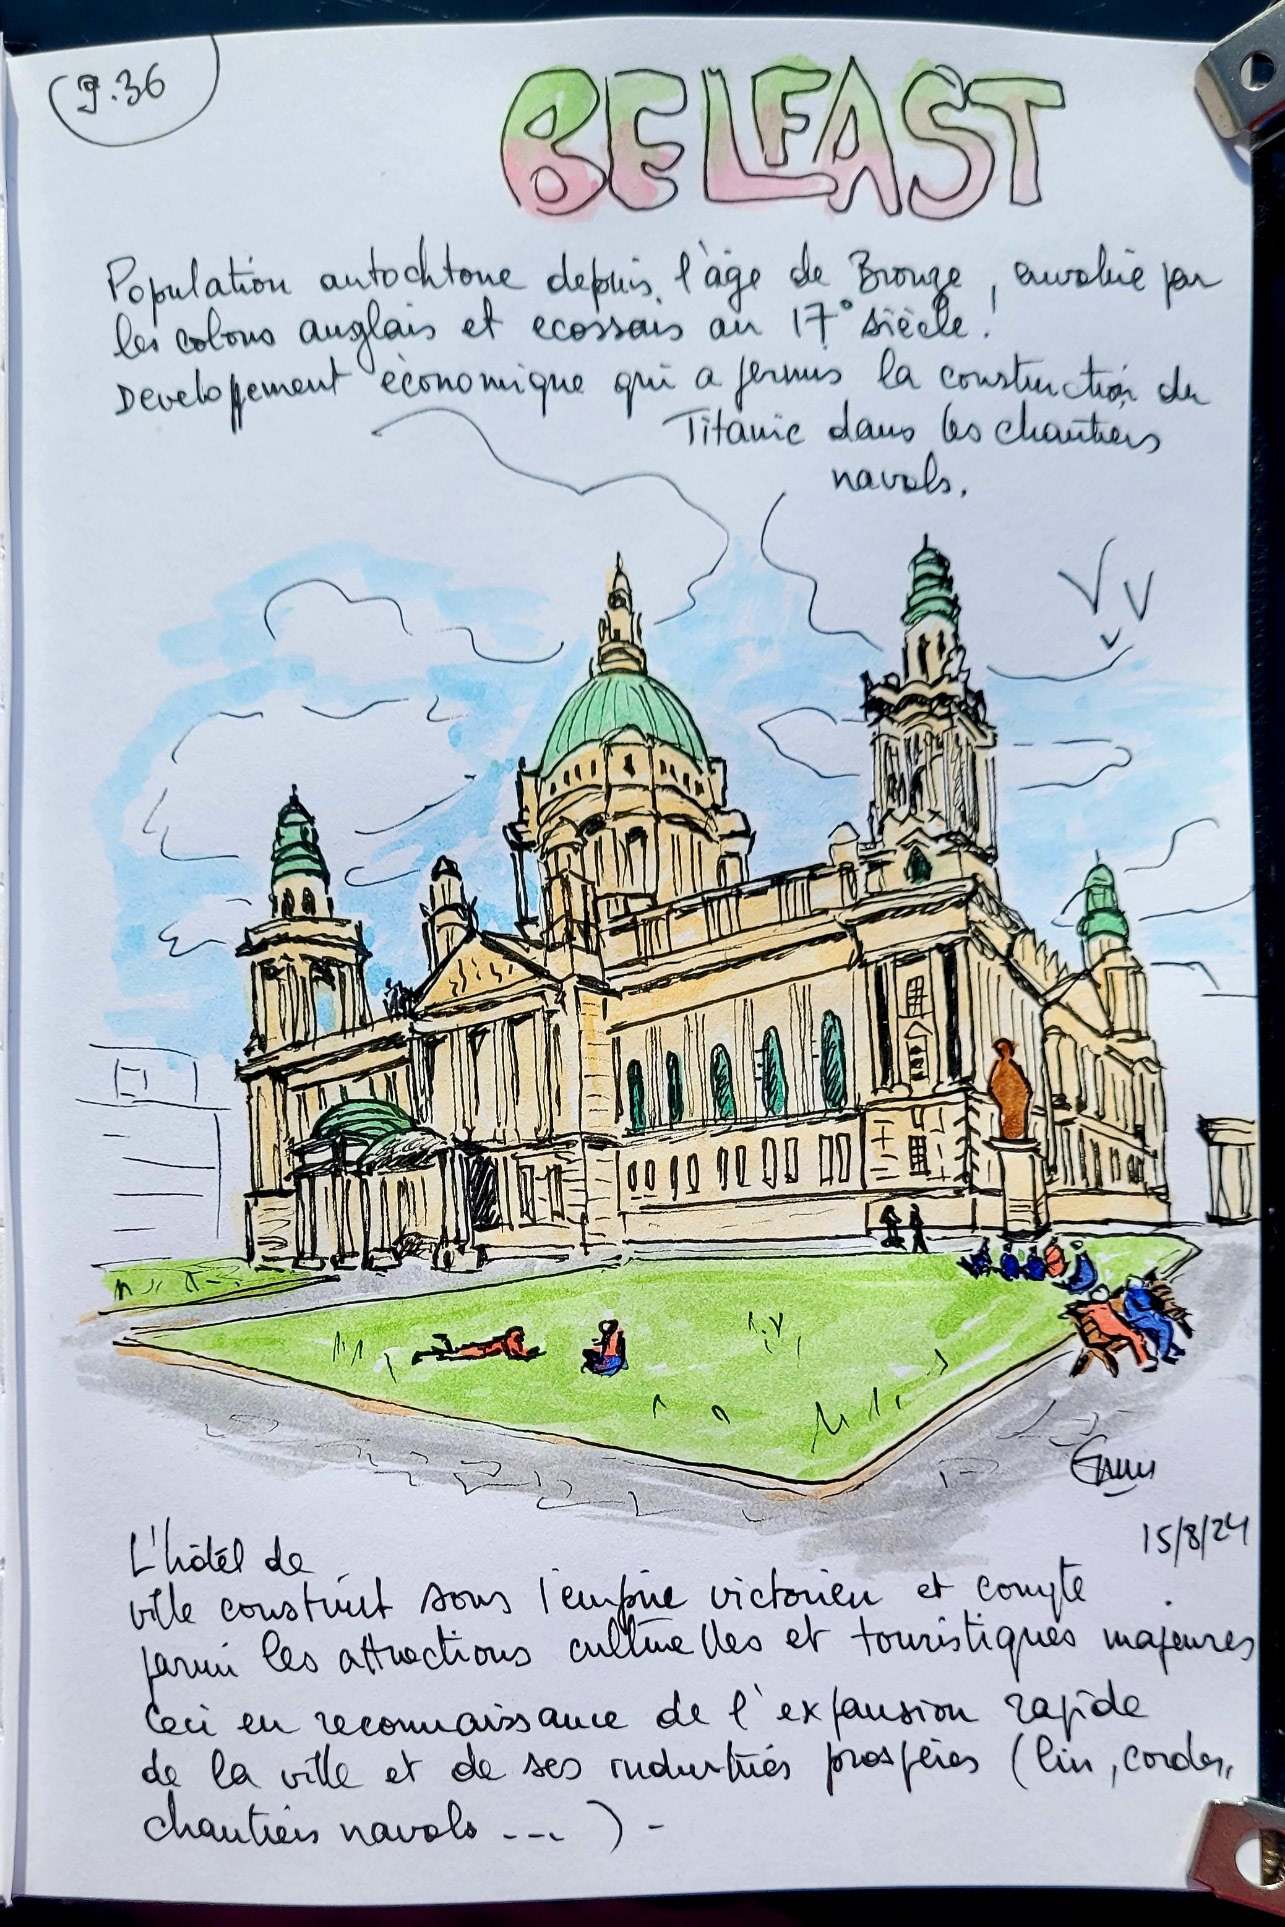 J.36
BELFAST
Population autochtone depuis l'âge de Bronze, envahie par
les colons anglais et ecossais au 17° siècle!
Developpement économique qui a permis la construction du
Titanic dans les chantiers
navals.
15/8/24
L'hôtel de
ville construit sous l'empire victorien et compte
parmi les attractions culturelles et touristiques majeures
Ceci en reconnaissance de l'expansion rapide
de la ville et de ses industries prospères (lin, cordes,
chantiers navals ---- ) -